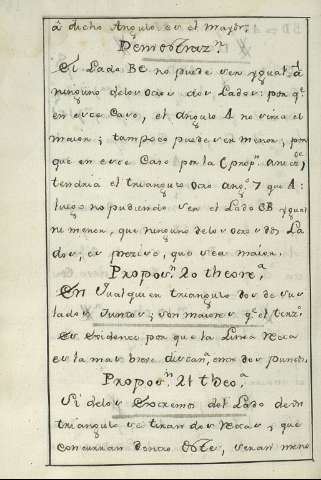 a dicho Angulo es el mayor.
Demostraz.n
El Lado BC no puede ser ygual â
ninguno delos otros dos Lados: por q.e
en esse Caso, el angulo A no sería el
maior; tampoco puede ser menor, por
que en esse Caso por la
tendria el triangulo otro ang.o que A:
luego no pudiendo ser el Lado CB ygual
ni menor, que ninguno delos otros dos La
dos, es preziso, que sea maior.
Propos.n 20 theore.a
En qualquier triangulo dos de sus
lados Juntos, son maiores q.e el terz.o
Es evidente por que la Linea Recta
es la mas breve distan.a entre dos puntos.
Propos.n 21 theo.a
Si delos Extremos del Lado de un
triangulo se tiran dos Rectas, que
concurran dentro seran meno